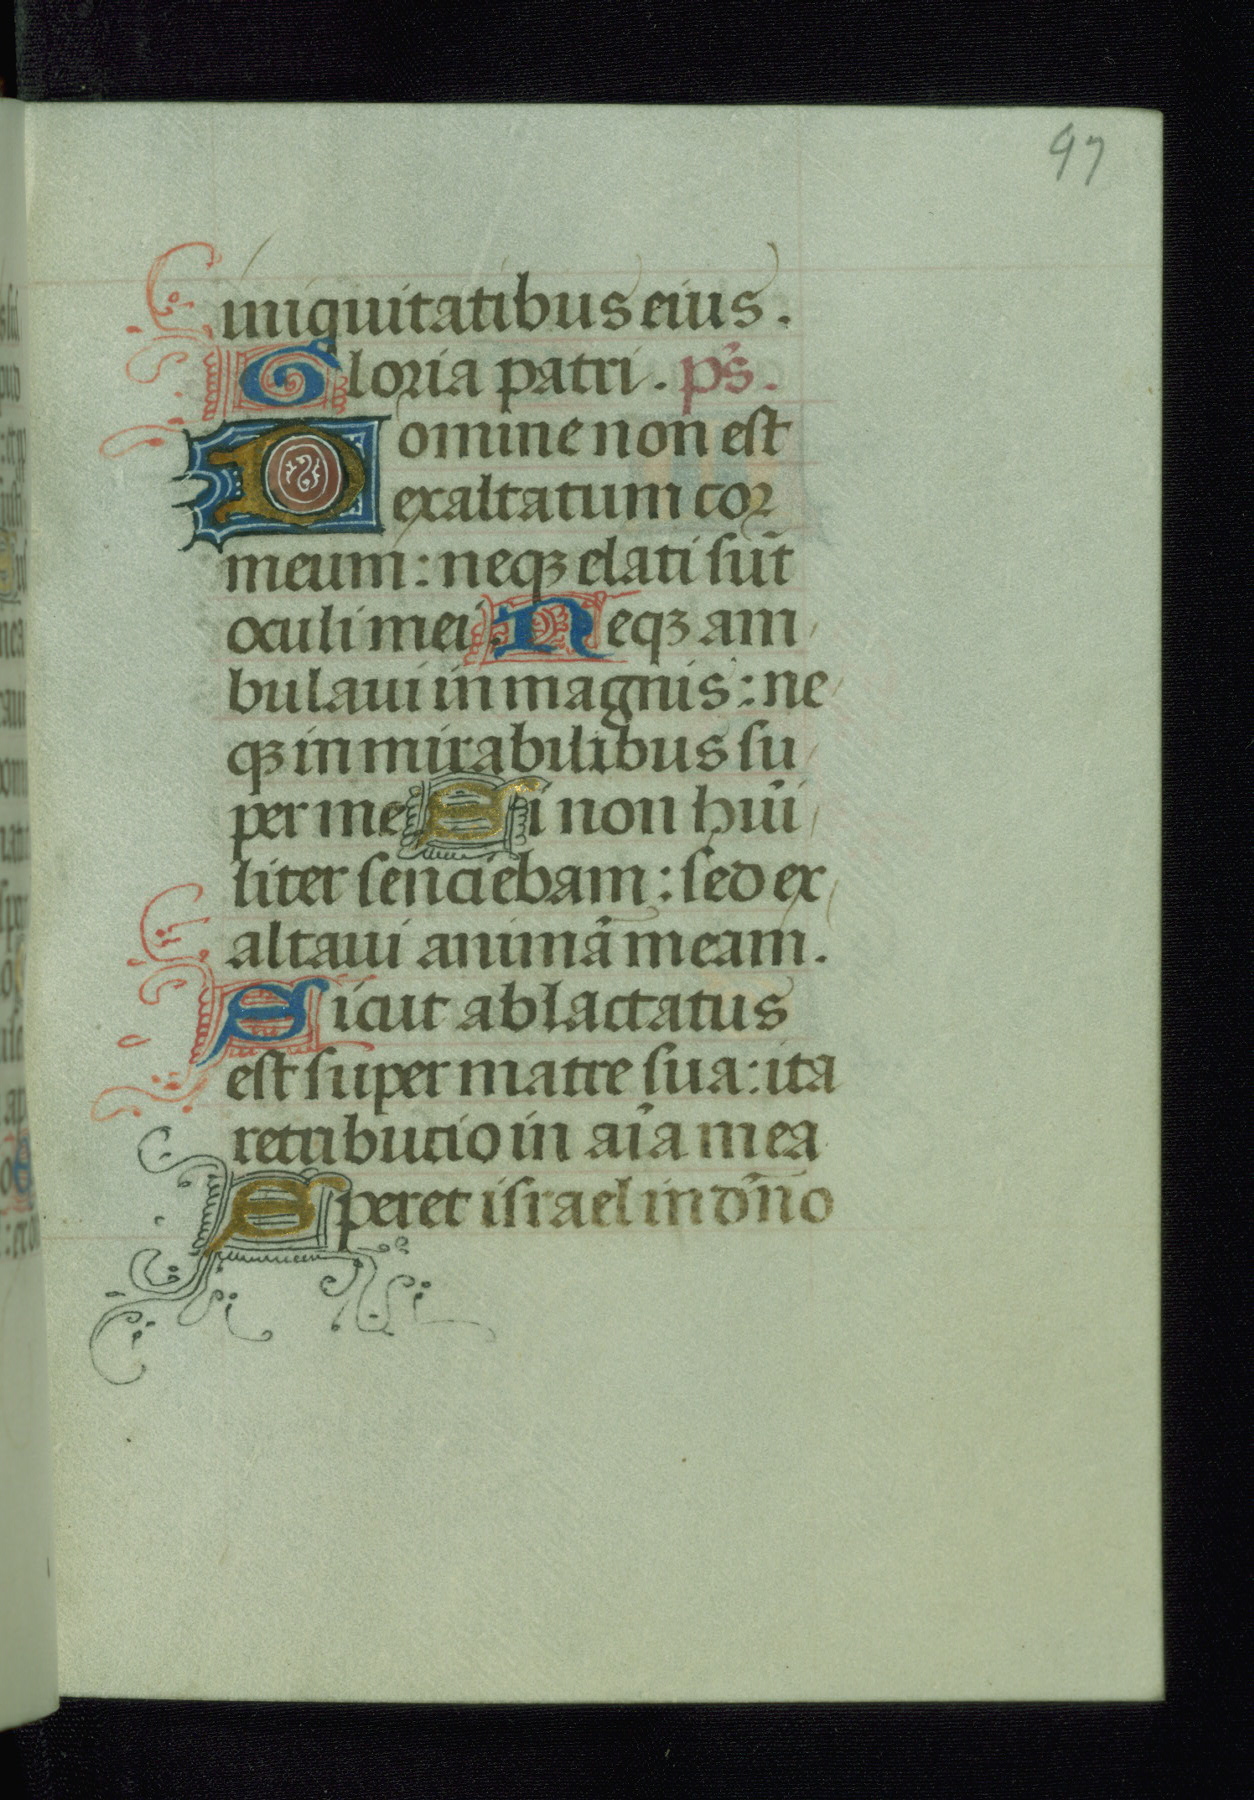 97
iniquitatibus eius.
Gloria patri. ps̄.
Domine non est
exaltatum cor
meum: neqꝫ elati sūt
oculi mei. Neqꝫ am
bulaui in magnis: ne
qꝫ in mirabilibus su
per me Si non hūi
liter senciebam: sed ex
altaui animā meam.
Sicut ablactatus
est super matre sua: ita
retribucio in aīa mea
Speret israel in dn̄o